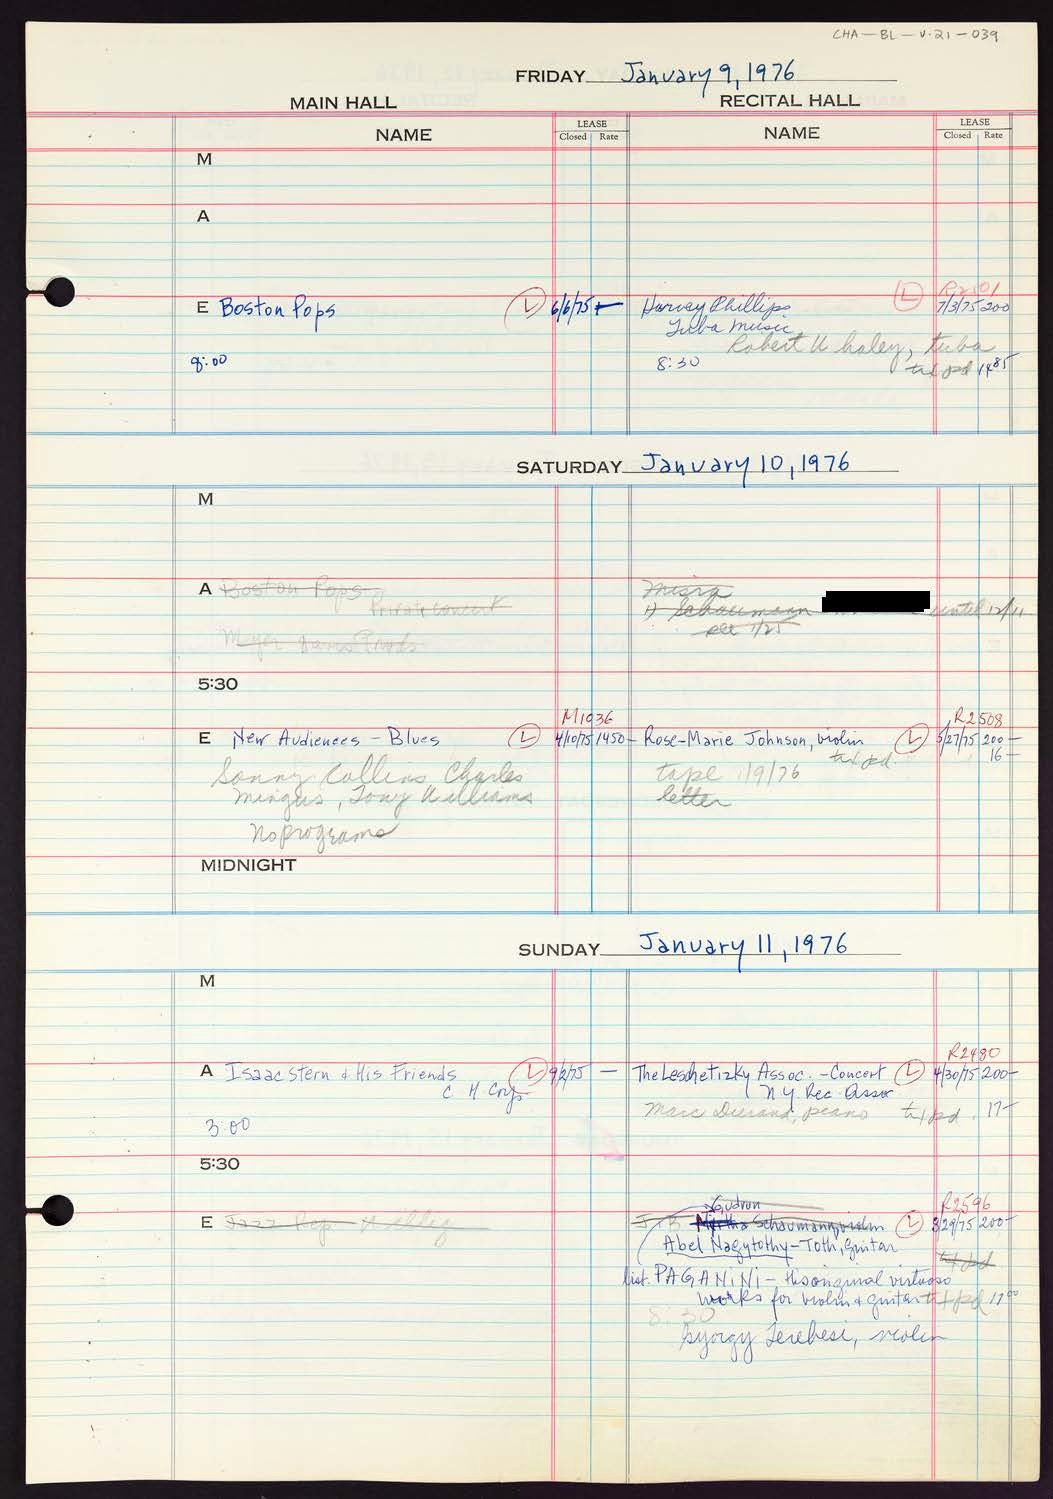 CHA-BL-V.21-039
FRIDAY January 9, 1976
MAIN HALL RECITAL HALL
NAME LEASE Closed Rate NAME LEASE Closed Rate
M
A
R2501
E Boston Pops L 6/6/75 — Harvey Phillips L 7/3/75 200
Tuba Music
Robert Whaley, tuba
8:00 8:30 tx pd 14 85
SATURDAY January 10, 1976
M
A Boston Pops Misra
Private Concert H Schaumann until 12/11
1/25
Meyer Davis Prods
5:30
M1936 R2508
E New Audiences - Blues L 4/10/75 1450- Rose-Marie Johnson, violin L 5/27/75 200-
tx pd 16-
Sonny Rollins, Charles tape 1/9/76
Mingus, Tony Williams letter
No programs
MIDNIGHT
SUNDAY January 11, 1976
M
R2480
A Isaac Stern & His Friends L 9/2/75 — The Leschetizky Assoc. - Concert L 4/30/75 200-
C H Corp NY Rec Assoc
Marc Durand, piano tx pd. 17-
3:00
5:30
Gudrun R2596
E Jazz Rep J. B. Schaumann, violin L 3/29/75 200-
Abel Nagytothy-Toth, guitar
tx pd
list. PAGANINI - His original virtuoso
works for violin & guitar tx pd 17 00
8:30
Gyorgy Terebesi, violin